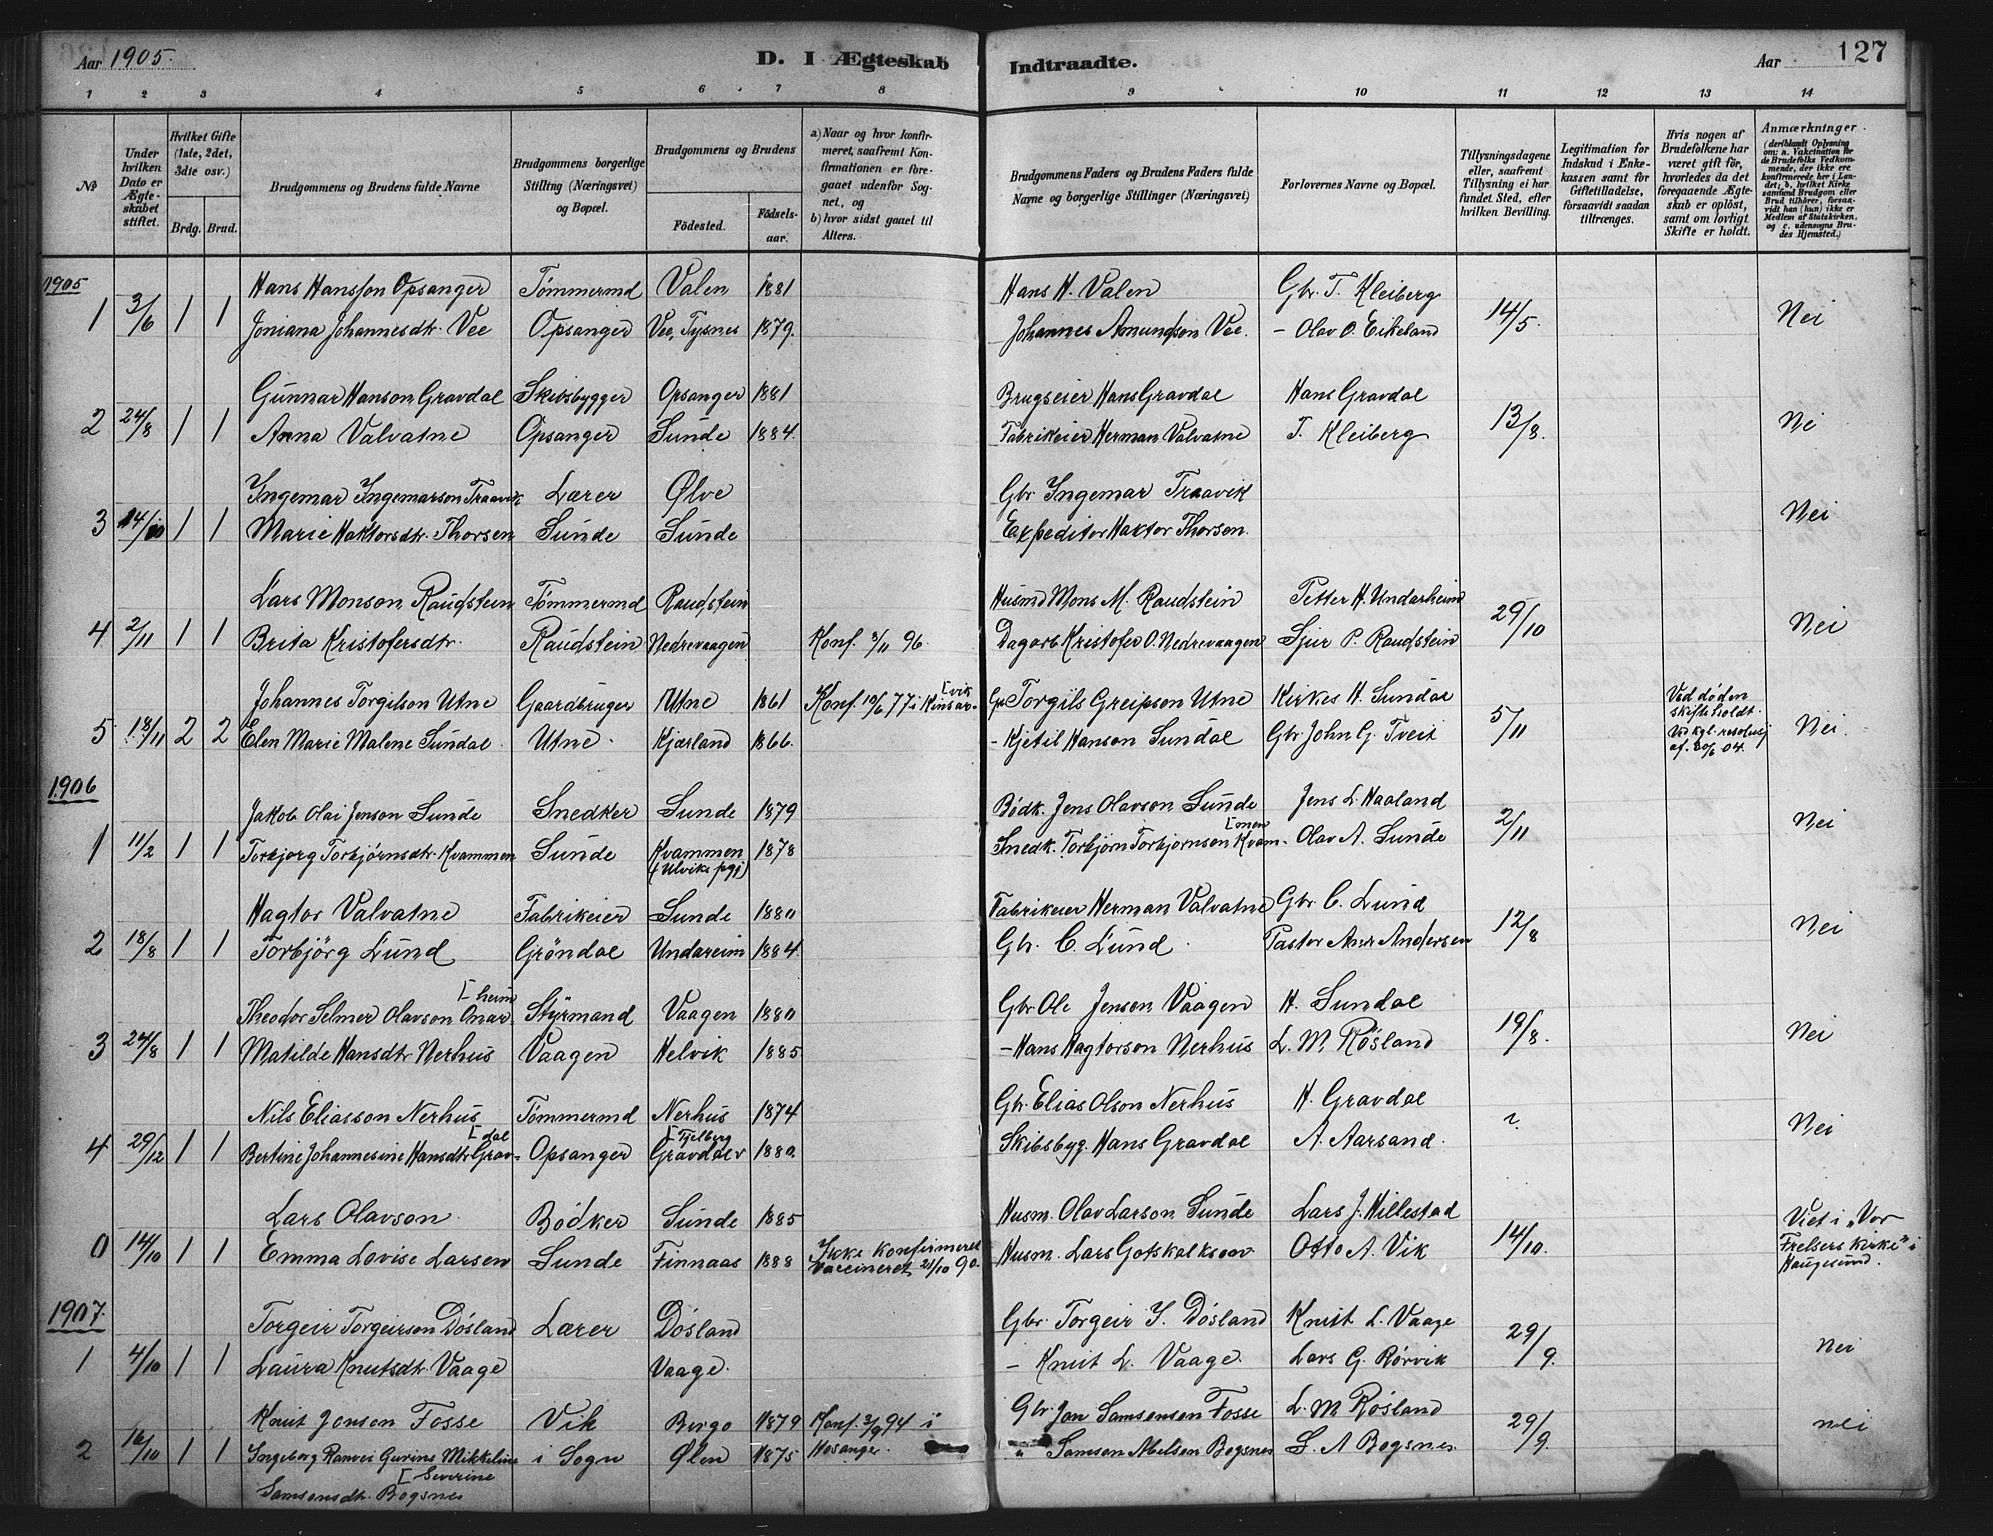 Aar 1905.
D. I Ægteskab
Indtraadte.
Aar
127
1 2 3 4 5 6 7 8 9 10 11 12 13 14
№
Under hvilken Dato er Ægteskabet stiftet.
Hvilket Gifte (1ste, 2det, 3die osv.)
Brdg. Brud.
Brudgommens og Brudens fulde Navne
Brudgommens borgerlige Stilling (Næringsvei) og Bopæl.
Brudgommens og Brudens
Födested.
Födselsaar.
a) Naar og hvor konfirmeret, saafremt Konfirmationen er foregaaet udenfor Sognet, og
b) hvor sidst gaaet til Alters.
Brudgommens Faders og Brudens Faders fulde Navne og borgerlige Stillinger (Næringsvei)
Forlovernes Navne og Bopæl.
Tillysningsdagene eller, saafremt Tillysning ei har fundet Sted, efter hvilken Bevilling.
Legitimation for Indskud i Enkekassen samt for Giftetilladelse, forsaavidt saadan tiltrænges.
Hvis nogen af Brudefolkene har været gift før, hvorledes da det foregaaende Ægteskab er oplöst, samt om lovligt Skifte er holdt.
Anmærkninger (deriblandt Oplysning om: a. Vakcination for de Brudefolks Vedkommende, der ikke ere konfirmerede her i Landet; b. hvilket Kirkesamfund Brudgom eller Brud tilhörer, forsaavidt han (hun) ikke er Medlem af Statskirken, og c. udensogns Brudes Hjemsted.)
1905
Hans Hansson Opsanger Tömmermd Valen 1881 Hans H. Valen Gbr. T. Kleiberg
1 3/6 1 1 Joniana Johannesdtr. Vee Opsanger Vee, Tysnes 1879. Johannes Amundson Vee. - Olav O. Eikeland 14/5. Nei
Gunnar Hanson Gravdal Skibsbygger Opsanger 1881 Brugseier Hans Gravdal Hans Gravdal
2 24/8 1 1 Anna Valvatne Opsanger Sunde 1884. Fabrikeier Herman Valvatne T. Kleiberg 13/8. Nei
Ingemar Ingemarson Traavik Lærer Ølve Gbr Ingemar Traavik
3 14/10 1 1 Marie Haktorsdtr. Thorsen Sunde Sunde Expeditor Haktor Thorsen. Nei
Lars Monson Raudstein Tömmermd Raudstein Husmd Mons M. Raudstein Petter H. Undarheim
4 2/11 1 1 Brita Kristofersdtr. Raudstein Nedrevaagen Konf. 3/11 96. Dagarb Kristofer O. Nedrevaagen Sjur P. Raudstein 29/10 Nei
Johannes Torgilson Utne Gaardbruger Utne 1861 Konf. 10/6 77 i Kinsar[vik Gbr Torgils Greipson Utne Kirkes H. Sundal Ved døden skifte holdt.
5 18/11 2 2 Elen Marie Malene Sundal. Utne. Kjærland 1866. - Kjetil Hanson Sundal Gbr. John G. Tveit 5/11 Ved kgl. resolusj af. 20/6 04. Nei.
1906
Jakob Olai Jenson Sunde Snedker Sunde 1879 Bödk. Jens Olavson Sunde Jens L. Haaland
1 11/2 1 1 Torbjorg Torbjørnsdtr. Kvammen Sunde Kvammen (Ulvike pgj) 1878 Snedk. Torbjörn Torbjornson Kvam-[men Olav A. Sunde 2/11 Nei
Hagtor Valvatne Fabrikeier Sunde 1880 Fabrikeier Herman Valvatne Gbr. C. Lund
2 18/8 1 1 Torbjörg Lund Gröndal Undareim 1884. Gbr. C. Lund. Pastor Andr Andersen 12/8 Nei
Theodor Selmer Olavson Onar-[heim Styrmand Vaagen 1880 Gbr Ole Jenson Vaagen H. Sundal
3 24/8 1 1 Matilde Hansdtr Nerhus Vaagen Helvik 1885 - Hans Hagtorson Nerhus L. M. Røsland 19/8. Nei
Nils Eliasson Nerhus Tömmermd Nerhus 1874 Gbr. Elias Olson Nerhus H. Gravdal
4 29/12 1 1 Bertine Johannesine Hansdtr Grav-[dal Opsanger Gravdal [Fjelberg 1880. Skibsbyg. Hans Gravdal A. Aarsand. ?. Nei
Lars Olavson. Bödker Sunde 1885 Husm. Olav Larson Sunde Lars J. Hillestad
0 14/10 1 1 Emma Lovise Larsen Sunde Finnaas 1888 Ikke konfirmeret Vaccineret 21/10 90. Husm. Lars Gotskalkson Otto A. Vik 14/10. Viet i "Vor Frelsers Kirke" i Haugesund.
1907.
Torgeir Torgeirson Dösland Lærer Dösland Gbr. Torgeir I. Dösland Knut L. Vaage
1 4/10 1 1 Laura Knutsdtr. Vaage Vaage. - Knut L. Vaage. Lars G. Rørvik 29/9. Nei
Knut Jonson Fosse Vik Borgo 1879 Konf. 3/9 94 i Hosanger. Gbr. Jon Samsonsen Fosse L. M. Røsland
2 16/10 1 1 Ingeborg Ranvei Gurine Mikkeline [Severine Samsonsdtr. Bogsnes i Sogn Ølen 1875 " Samson Abelsen Bogsnes S. A Bogsnes. 29/9. nei